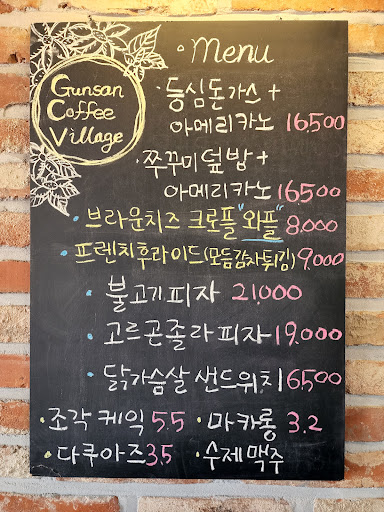 Gunsan
Coffee
Village
·Menu
·등심돈가스+
아메리카노 16,500
·쭈꾸미덮밥+
아메리카노 16,500
·브라운치즈 크로플"와플" 8,000
·프렌치후라이드(모듬감자튀김) 9,000
·불고기피자 21,000
·고르곤졸라피자 19,000
·닭가슴살 샌드위치 6,500
·조각케익 5.5 ·마카롱 3.2
·다쿠아즈 3.5 ·수제맥주